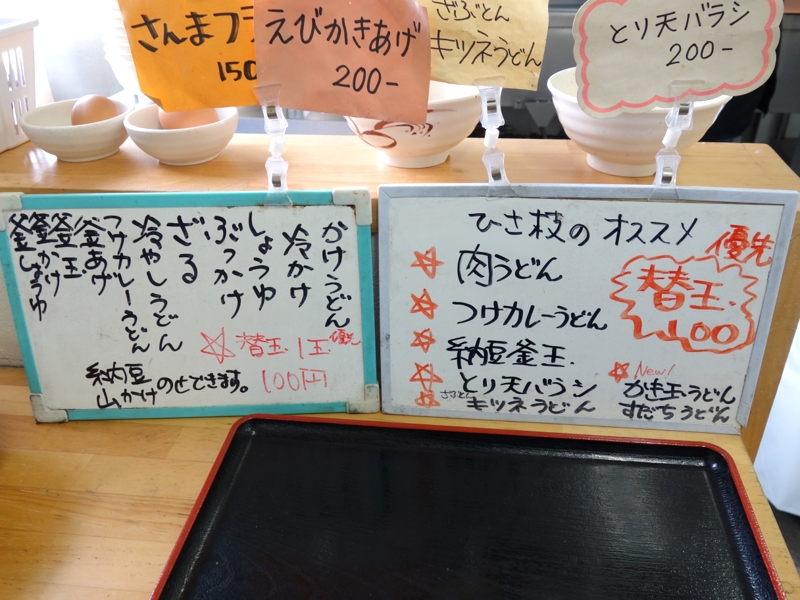 さんまフラ
150
えびかきあげ
200-
ざぶとん
キツネうどん
とり天バラシ
200-
かけうどん
冷かけ
しょうゆ
ぶっかけ
ざる
冷やしうどん
つけカレーうどん
釜あげ
釜玉
釜かけ
釜しょうゆ
☆替玉1玉
優先
100円
納豆
山かけ
のせできます。
ひさ枝のオススメ
優先
替玉.
100
☆肉うどん
☆つけカレーうどん
☆納豆釜玉.
☆とり天バラシ
☆ざぶとん
キツネうどん
☆New!
かき玉うどん
すだちうどん